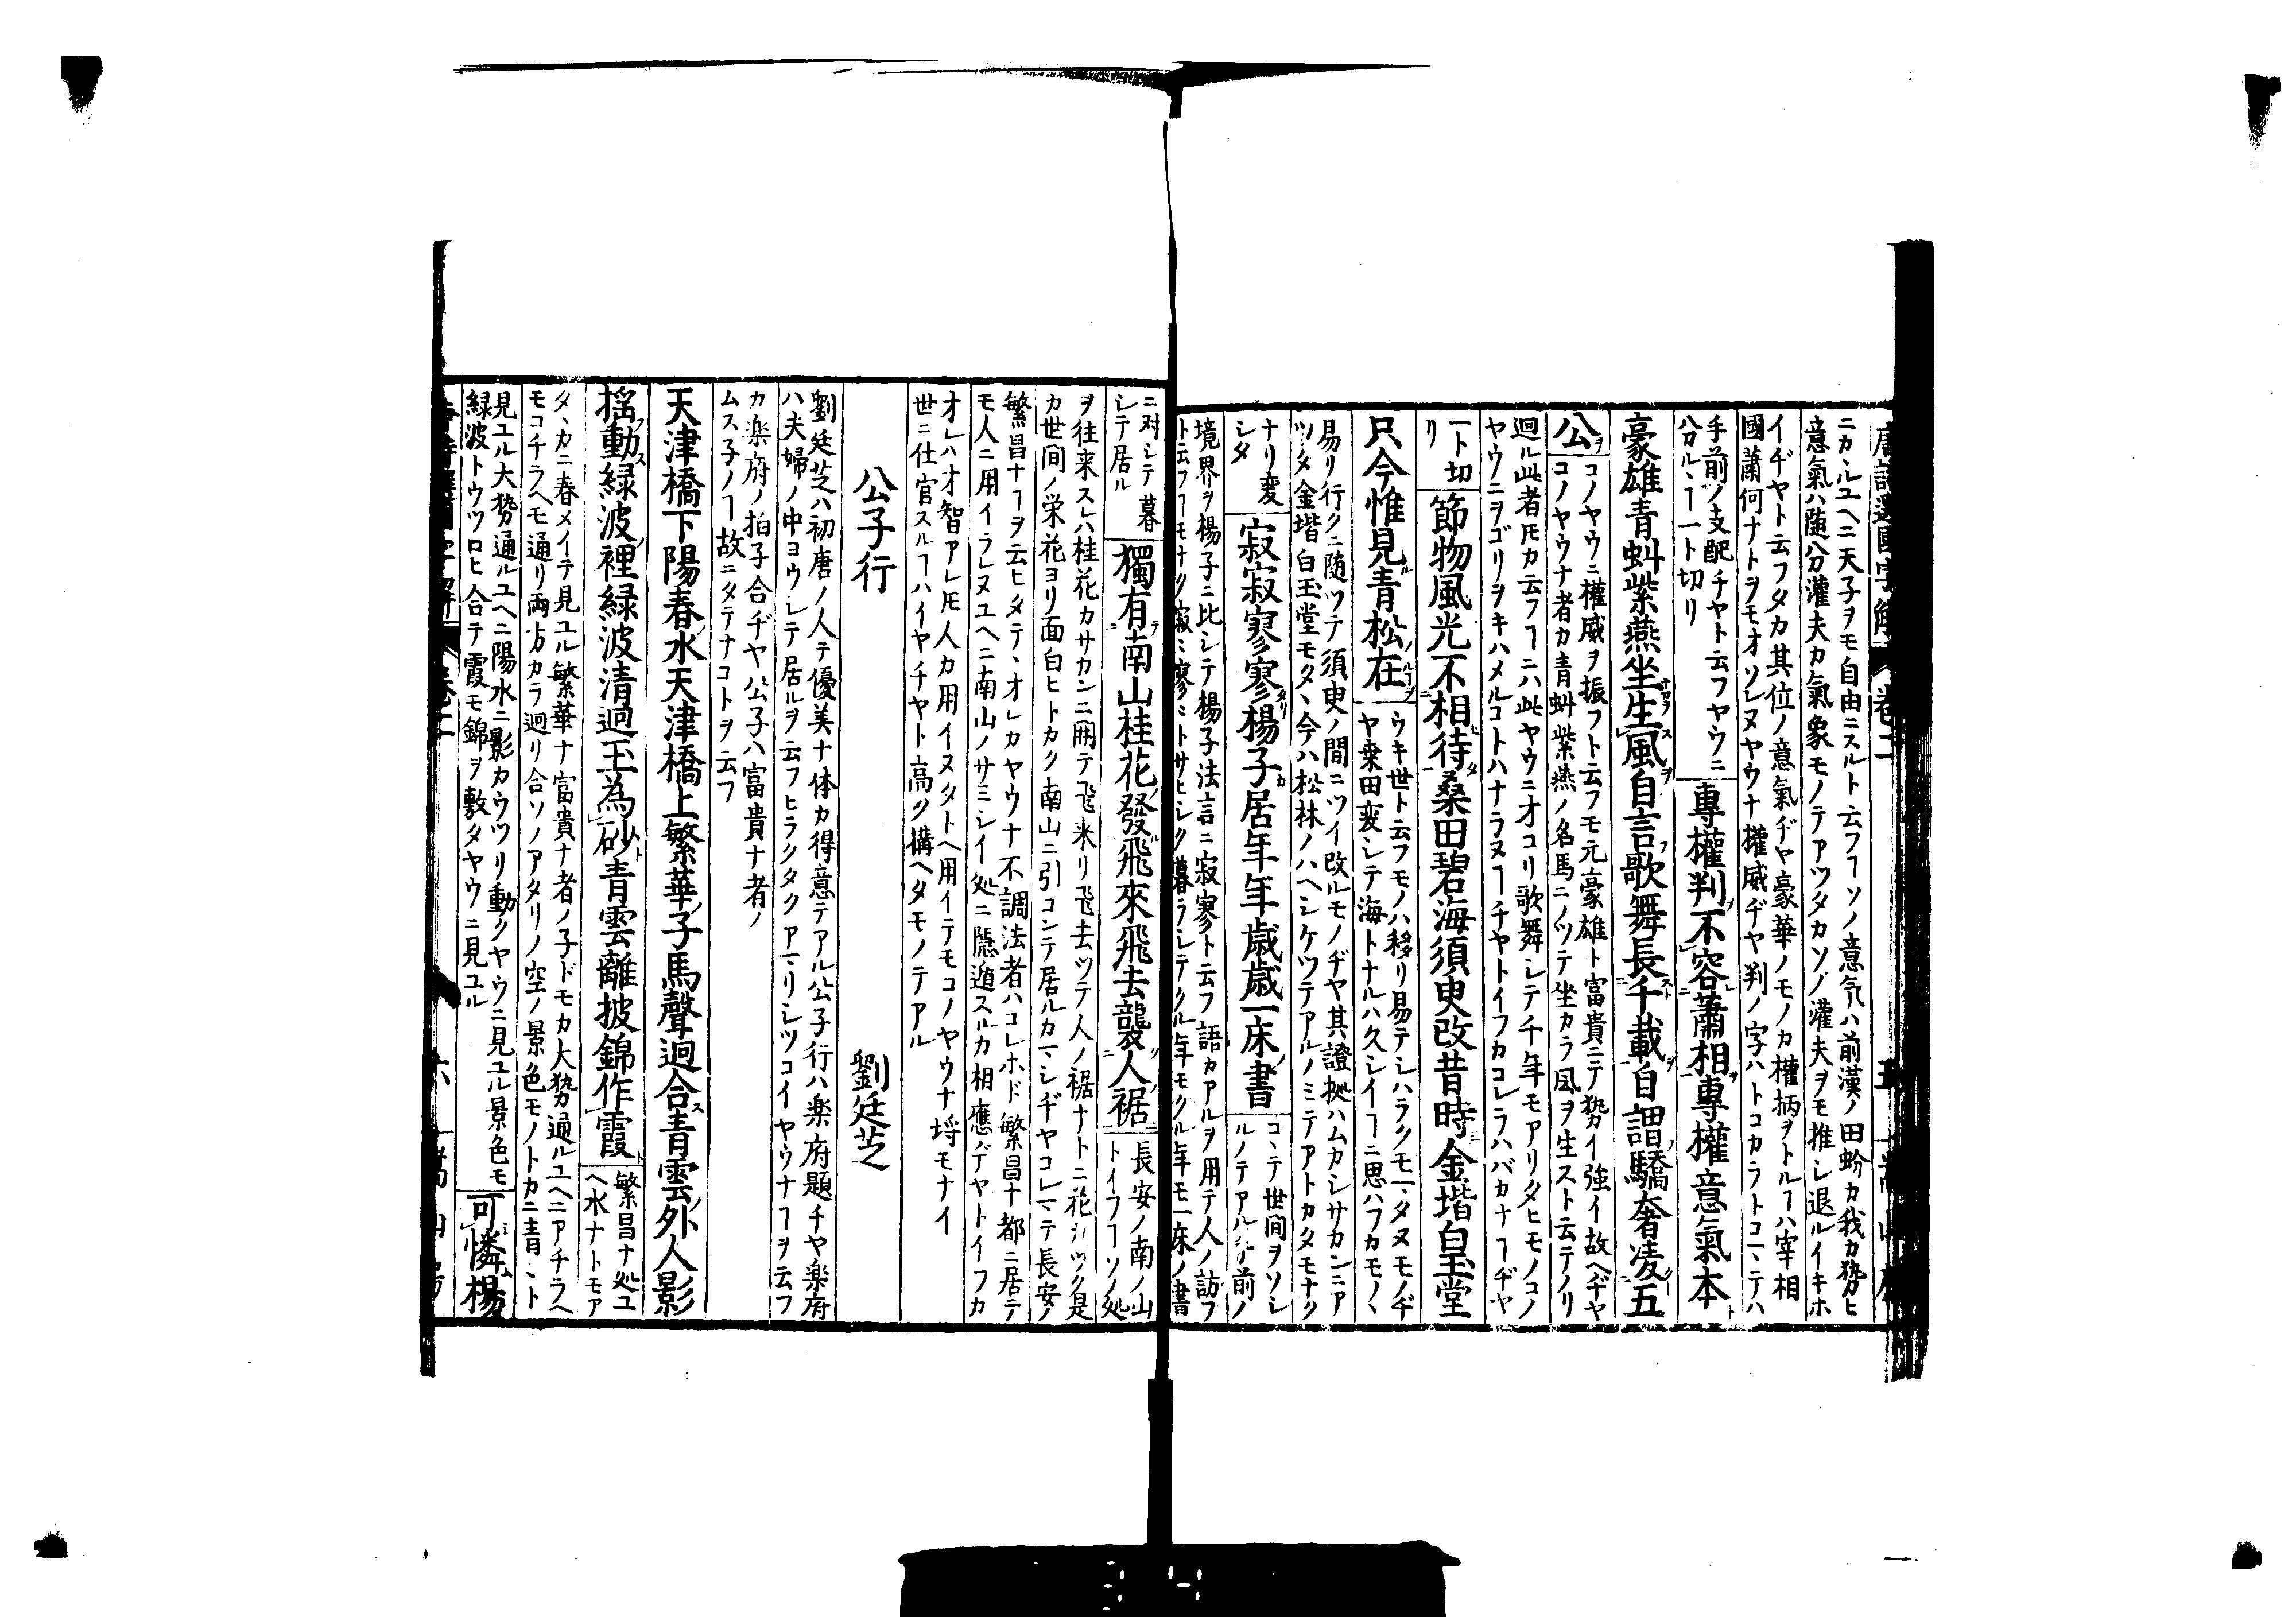 唐詩選國字解 卷二
ニカヽルユヘニ天子ヲモ自由ニスルト云フヿソノ意気ハ前漢ノ田蚡カ我カ勢ヒ
意氣ハ随分灌夫カ氣象モノテアツタカソノ灌夫ヲモ推シ退ルイキホ
イヂヤト云フタカ其位ノ意氣ヂヤ豪華ノモノカ權柄ヲトルヿハ宰相
國蕭何ナトヲモオソレヌヤウナ權威ヂヤ判ノ字ハトコカラトコヽテハ
手前ノ支配チヤト云フヤウニ
分ルヽヿ一ト切リ
專權判不容蕭相專權意氣本
豪雄青虯紫燕坐生風自言歌舞長千載自謂驕奢凌五
公
コノヤウニ權威ヲ振フト云フモ元豪雄ト富貴ニテ勢イ強イ故ヘヂヤ
コノヤウナ者カ青虯紫燕ノ名馬ニノツテ坐カラ風ヲ生スト云テノリ
迴ル此者𪜈カ云フヿニハ此ヤウニオコリ歌舞シテ千年モアリタヒモノコノ
ヤウニヲゴリヲキハメルコトハナラヌヿチヤトイフカコレラハバカナヿヂヤ
一ト切
リ
節物風光不相待桑田碧海須臾改昔時金堦白玉堂
只今惟見青松在
ウキ世ト云フモノハ移リ易テシハラクモヽタヌモノヂ
ヤ桒田変シテ海トナルハ久シイヿニ思ハフカモノ〱
易リ行クニ随ツテ須臾ノ間ニツイ改ルモノヂヤ其證拠ハムカシサカンニア
ツタ金堦白玉堂モタヽ今ハ松林ノハヘシケツテアルノミテアトカタモナク
ナリ変
シタ
寂寂寥寥楊子居年年歳歳一床書
コヽテ世間ヲソシ
ルノテアル手前ノ
境界ヲ楊子ニ比シテ楊子法言ニ寂寥ト云フ語カアルヲ用テ人ノ訪フ
ト云フヿモナク寂〻寥〻トサヒシク暮ラシテクル年モクル年モ一床ノ書
ニ対シテ暮
シテ居ル
獨有南山桂花發飛來飛去襲人裾
長安ノ南ノ山
トイフヿソノ処
ヲ往来スレハ桂花カサカンニ開テ飛来リ飛去ツテ人ノ裾ナトニ花カツク是
カ世間ノ栄花ヨリ面白ヒトカク南山ニ引コンテ居ルカヽシヂヤコレヽテ長安ノ
繁昌ナヿヲ云ヒタテヽオレカヤウナ不調法者ハコレホド繁昌ナ都ニ居テ
モ人ニ用イラレヌユヘニ南山ノサミシイ処ニ隠遁スルカ相應ヂヤトイフカ
オレハオ智アレ𪜈人カ用イヌタトヘ用イテモコノヤウナ埒モナイ
世ニ仕官スルヿハイヤチヤト高ク構ヘタモノテアル
公子行 劉廷芝
劉廷芝ハ初唐ノ人テ優美ナ体カ得意テアル公子行ハ楽府題チヤ楽府
ハ夫婦ノ中ヨウシテ居ルヲ云フヒラクタクアヽリシツコイヤウナヿヲ云フ
カ楽府ノ拍子合ヂヤ公子ハ富貴ナ者ノ
ムス子ノヿ故ニタテナコトヲ云フ
天津橋下陽春水天津橋上繁華子馬聲迴合青雲外人影
揺動緑波裡緑波清迥玉為砂青雲離披錦作霞
繁昌ナ処ユ
ヘ水ナトモア
タヽカニ春メイテ見ユル繁華ナ富貴ナ者ノ子ドモカ大勢通ルユヘニアチラヘ
モコチラヘモ通リ両方カラ迴リ合ソノアタリノ空ノ景色モノトカニ青ヽト
見ユル大勢通ルユヘニ陽水ニ影カウツリ動クヤウニ見ユル景色モ
緑波トウツロヒ合テ霞モ錦ヲ敷タヤウニ見ユル
可憐楊